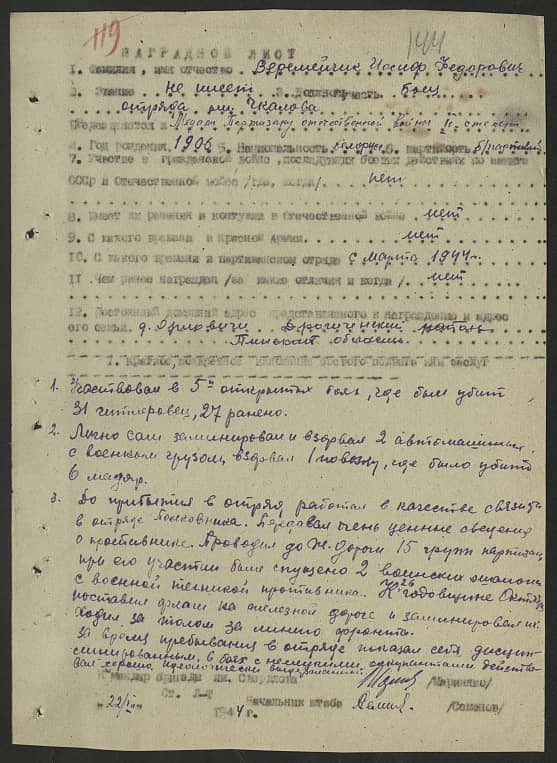 119
144
НАГРАДНОЙ ЛИСТ
1. Фамилия, имя отчество Веремейчик Иосиф Федорович
2. Звание не имеет 3. Должность часть боец
отряда им. Чкалова
Представляется к Медали Партизану отечественной войны II степени
4. Год рождения 1906 5. Национальность 6. партийность б/партийн
7. Участие в гражданской войне, последующих боевых действиях по защите
СССР и Отечественной войне /где, когда/ нет
8. Имеет ли ранения и контузии в Отечественной войне нет
9. С какого времени в Красной Армии нет
10. С какого времени в партизанском отряде с марта 1944г.
11. Чем ранее награжден /за какие отличия и когда/ нет
12. Постоянный домашний адрес представленного к награждению и адрес
его семьи д. Дрогичинский район
Пинской область
1. Краткое, конкретное изложение боевого подвига или заслуг
1. Участвовал в 5и открытых боях, где был убит
31 гитлеровец, 27 ранено.
2. Лично сам заминировал и взорвал 2 автомашины
с военным грузом, взорвал 1 повозку, где было убито
6 мадяр.
3. До прибытия в отряд работал в качестве связного
в отряде Передавал очень ценные сведения
о противнике. Проводил до ж. дороги 15 групп партизан,
при его участии было спущено 2 воинских эшелона
с военной техникой противника. К 26 годовщине Октября
поставил флаги на железной дороге и заминировал их
Ходил за толом за линию фронта.
За время пребывания в отряде показал себя дисцип-
линированным, в боях с немецкими оккупантами действо-
вал хорошо,
Командир бригады им. Свердлова /Маринко/
Ст. Л-т
Начальник штаба /Семенов/
"22/ 1944 г.